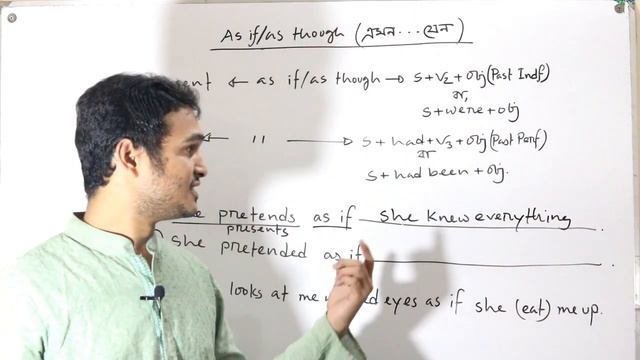 As if/as though (এমন... যেন)
ent ← as if/as though → S+V2+obj (Past Indf)
or,
S+were+obj
← " → S+had+V3+obj (Past Perf)
or
S+had been+obj.
pretends as if she knew everything.
presents
she pretended as if ______.
looks at me eyes as if she (eat) me up.